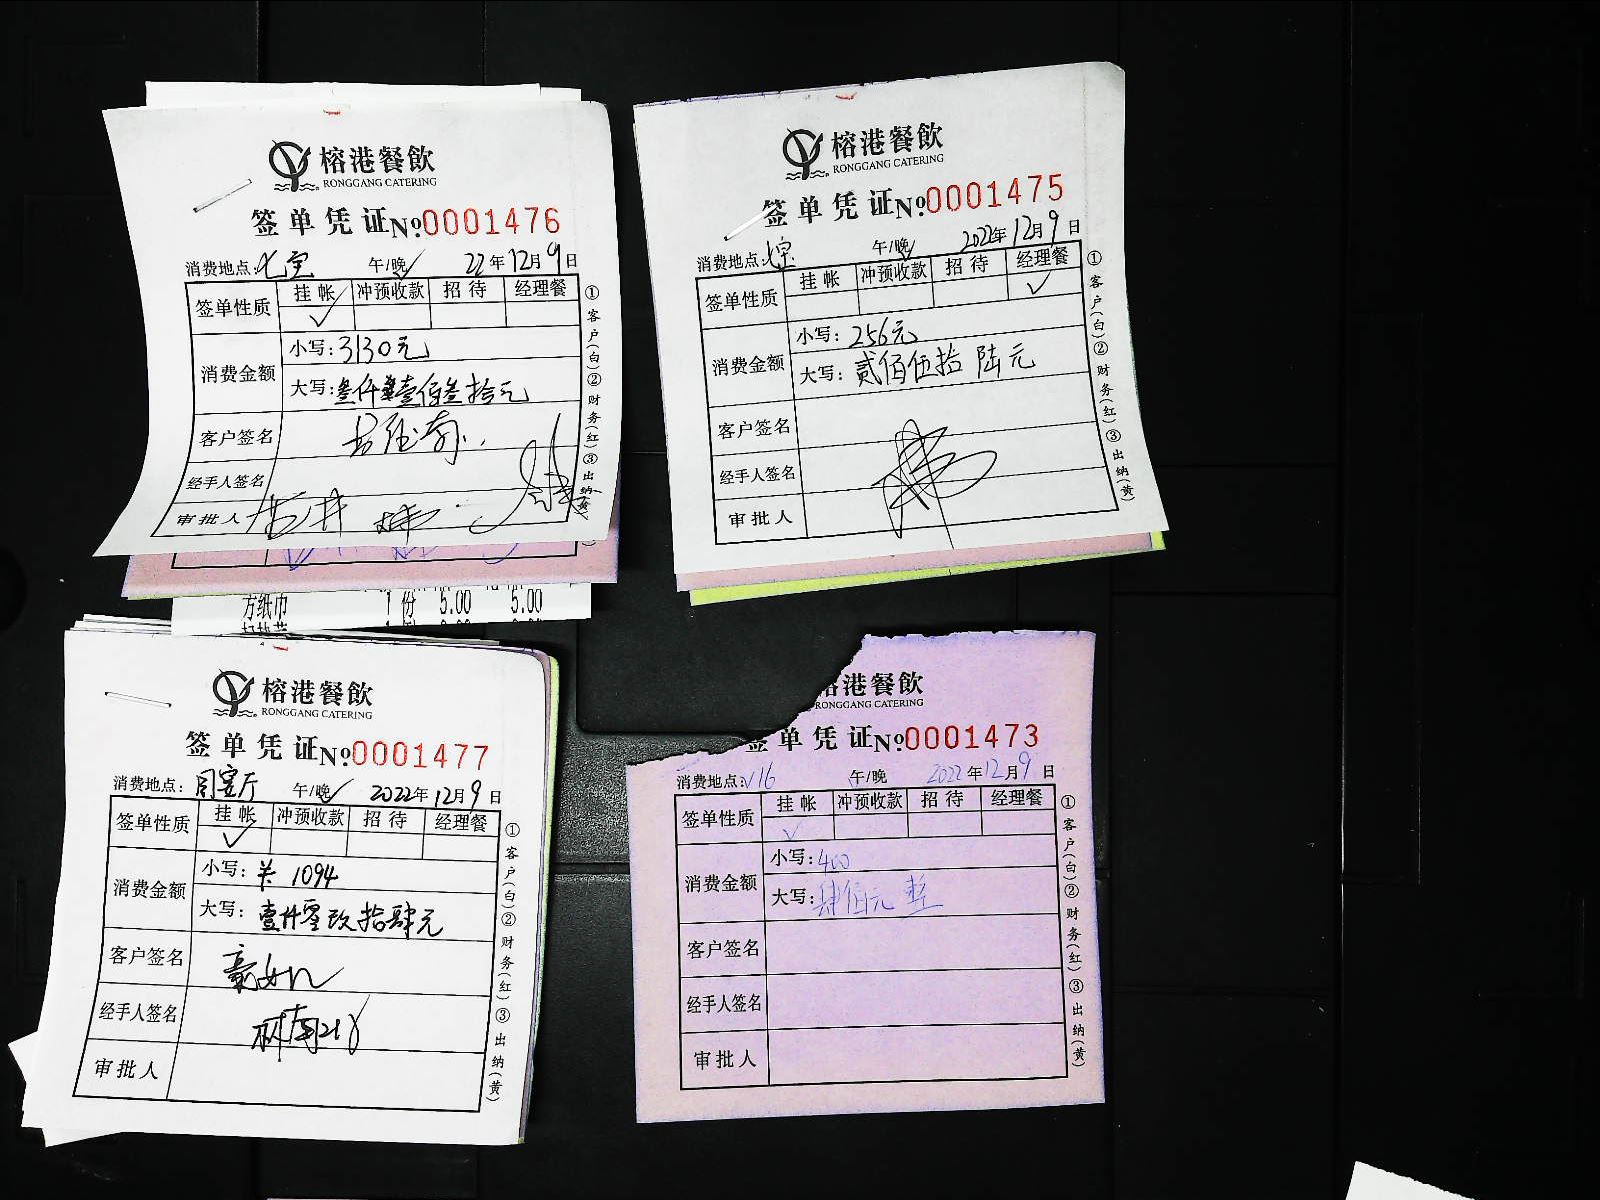 榕港餐飲
RONGGANG CATERING
签单凭证 No 0001476
消费地点: 七宝 午/晚✓ 22年12月9日
签单性质 挂帐 冲预收款 招待 经理餐
✓
消费金额 小写: 3130元
大写: 叁仟壹佰叁拾元
客户签名
经手人签名
审批人
①客户(白)②财务(红)③出纳(黄)
方纸巾 1份 5.00 5.00
榕港餐飲
RONGGANG CATERING
签单凭证 No 0001475
消费地点: 午/晚✓ 2022年12月9日
签单性质 挂帐 冲预收款 招待 经理餐
✓
消费金额 小写: 256元
大写: 贰佰伍拾陆元
客户签名
经手人签名
审批人
①客户(白)②财务(红)③出纳(黄)
榕港餐飲
RONGGANG CATERING
签单凭证 No 0001477
消费地点: 午/晚✓ 2022年12月9日
签单性质 挂帐 冲预收款 招待 经理餐
✓
消费金额 小写: 1094
大写: 壹仟零玖拾肆元
客户签名
经手人签名
审批人
①客户(白)②财务(红)③出纳(黄)
榕港餐飲
RONGGANG CATERING
签单凭证 No 0001473
消费地点: V16 午/晚 2022年12月9日
签单性质 挂帐 冲预收款 招待 经理餐
✓
消费金额 小写: 400
大写: 肆佰元整
客户签名
经手人签名
审批人
①客户(白)②财务(红)③出纳(黄)